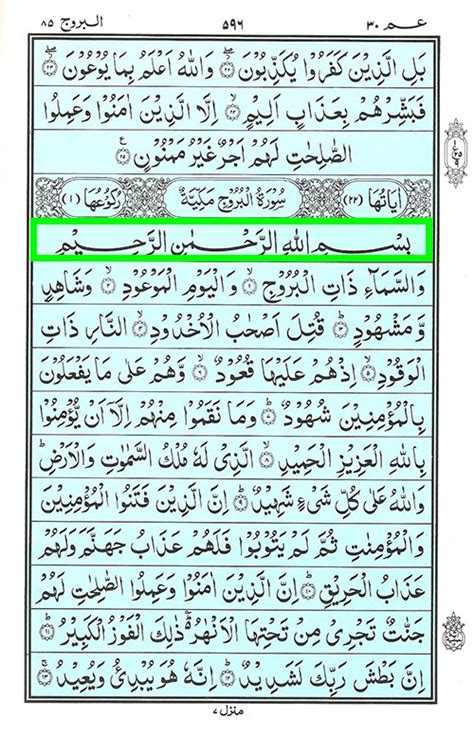 عـم ٣٠ ٥٩٦ البروج ٨٥
بَلِ الَّذِيْنَ كَفَرُوْا يُكَذِّبُوْنَ ﴿۲۲﴾ وَاللّٰهُ اَعْلَمُ بِمَا يُوْعُوْنَ ﴿۲۳﴾
فَبَشِّرْهُمْ بِعَذَابٍ اَلِيْمٍ ﴿۲۴﴾ اِلَّا الَّذِيْنَ اٰمَنُوْا وَعَمِلُوا
الصّٰلِحٰتِ لَهُمْ اَجْرٌ غَيْرُ مَمْنُوْنٍ ﴿۲۵﴾
اٰيَاتُهَا (٢٢) سُوْرَةُ الْبُرُوْجِ مَكِّيَّةٌ رُكُوْعُهَا (١)
بِسْمِ اللّٰهِ الرَّحْمٰنِ الرَّحِيْمِ
وَالسَّمَآءِ ذَاتِ الْبُرُوْجِ ﴿۱﴾ وَالْيَوْمِ الْمَوْعُوْدِ ﴿۲﴾ وَشَاهِدٍ
وَّمَشْهُوْدٍ ﴿۳﴾ قُتِلَ اَصْحٰبُ الْاُخْدُوْدِ ﴿۴﴾ النَّارِ ذَاتِ
الْوَقُوْدِ ﴿۵﴾ اِذْ هُمْ عَلَيْهَا قُعُوْدٌ ﴿۶﴾ وَّهُمْ عَلٰى مَا يَفْعَلُوْنَ
بِالْمُؤْمِنِيْنَ شُهُوْدٌ ﴿۷﴾ وَمَا نَقَمُوْا مِنْهُمْ اِلَّآ اَنْ يُّؤْمِنُوْا
بِاللّٰهِ الْعَزِيْزِ الْحَمِيْدِ ﴿۸﴾ الَّذِيْ لَهٗ مُلْكُ السَّمٰوٰتِ وَالْاَرْضِ
وَاللّٰهُ عَلٰى كُلِّ شَيْءٍ شَهِيْدٌ ﴿۹﴾ اِنَّ الَّذِيْنَ فَتَنُوا الْمُؤْمِنِيْنَ
وَالْمُؤْمِنٰتِ ثُمَّ لَمْ يَتُوْبُوْا فَلَهُمْ عَذَابُ جَهَنَّمَ وَلَهُمْ
عَذَابُ الْحَرِيْقِ ﴿۱۰﴾ اِنَّ الَّذِيْنَ اٰمَنُوْا وَعَمِلُوا الصّٰلِحٰتِ لَهُمْ
جَنّٰتٌ تَجْرِيْ مِنْ تَحْتِهَا الْاَنْهٰرُ ذٰلِكَ الْفَوْزُ الْكَبِيْرُ ﴿۱۱﴾
اِنَّ بَطْشَ رَبِّكَ لَشَدِيْدٌ ﴿۱۲﴾ اِنَّهٗ هُوَ يُبْدِئُ وَيُعِيْدُ ﴿۱۳﴾
منزل ٧